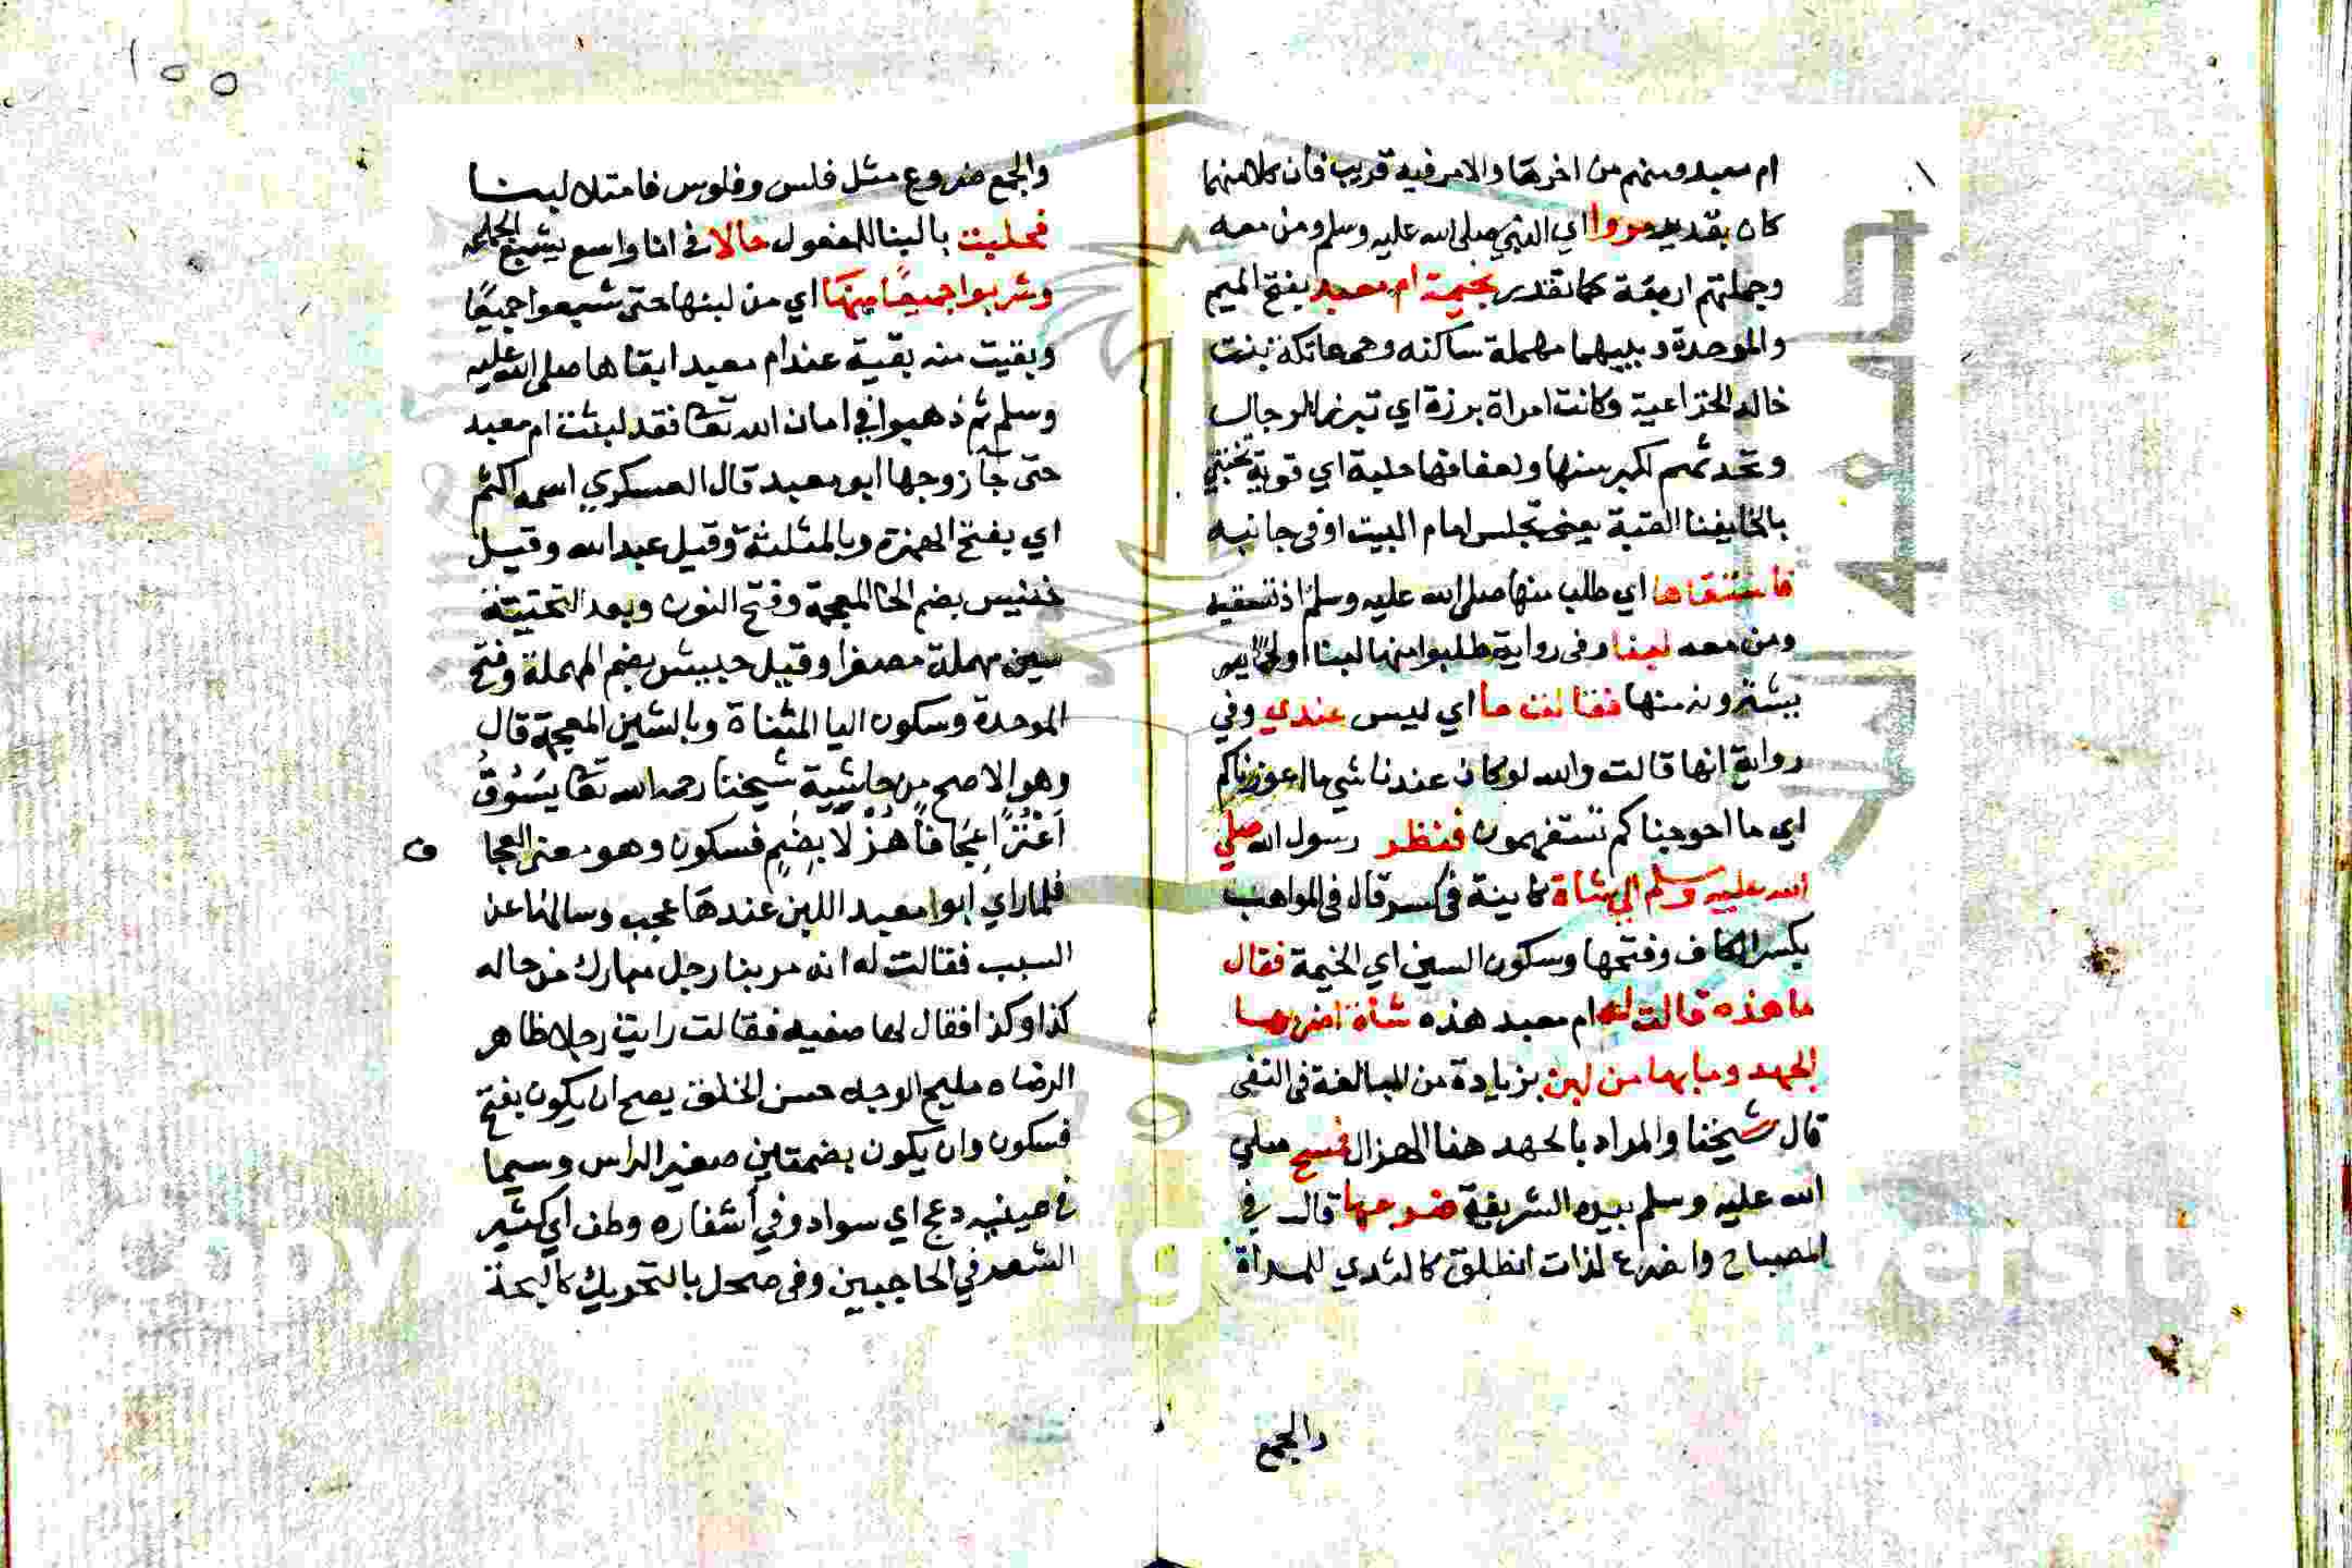 ام معبد ومنهم من اخرها والامر فيه قريب فان كلا منهما
كان بقديد مروا اي النبي صلى الله عليه وسلم ومن معه
وجملتهم اربعة كما تقدم بخيمة ام معبد بفتح الميم
والموحدة وبينهما مهملة ساكنه وهي عاتكة بنت
خالد الخزاعية وكانت امراة برزة اي تبرز للرجال
وتحدثهم لكبر سنها ولعفافها جلدة اي قوية تحتبي
بالخا بفنا القبة يعني تجلس امام البيت او في جانبه
فاستسقاها اي طلب منها صلى الله عليه وسلم ان تسقيه
ومن معه لبنا وفي رواية طلبوا منها لبنا او لحما
يشترونه منها فقالت ما اي ليس عندي وفي
رواية انها قالت والله لو كان عندنا شي ما اعوزناكم
اي ما احوجناكم تستفهمون فنظر رسول الله صلى
الله عليه وسلم الى شاة كاينة في كسر قال في المواهب
بكسر الكاف وفتحها وسكون السين اي الخيمة فقال
ما هذه قالت له ام معبد هذه شاة اضر بها
الجهد وما بها من لبن بزيادة من للمبالغة في النفي
قال شيخنا والمراد بالجهد هنا الهزال فمسح صلى
الله عليه وسلم بيده الشريفة ضرعها قال في
المصباح والضرع لذات الظلف كالثدي للمراة
والجمع
١٥٥
والجمع ضروع مثل فلس وفلوس فامتلا لبنا
فحلبت بالبنا للمفعول حالا في انا واسع يشبع الجماعة
وشربوا جميعا منها اي من لبنها حتى شبعوا جميعا
وبقيت منه بقية عند ام معبد ابقاها صلى الله عليه
وسلم ثم ذهبوا في امان الله تعا فقد لبثت ام معبد
حتى جآ زوجها ابو معبد قال العسكري اسمه اكثم
اي بفتح الهمزة وبالمثلثة وقيل عبد الله وقيل
خنيس بضم الخا المعجمة وفتح النون وبعد التحتية
سين مهملة مصغرا وقيل حبيش بضم المهملة وفتح
الموحدة وسكون اليا المثناة وبالشين المعجمة قال
وهو الاصح من حاشية شيخنا رحمه الله تعا يَسُوقُ
اَعْنُزًا عِجَافًا هُزْلًا بضم فسكون وهو معنى العجا
ف
فلما راي ابو معبد اللبن عندها عجب وسالها عن
السبب فقالت له انه مر بنا رجل مبارك من حاله
كذا وكذا فقال لها صفيه فقالت رايت رجلا ظاهر
الوضاه مليح الوجه حسن الخلق يصح ان يكون بفتح
فسكون وان يكون بضمتين صغير الراس وسيما
في عينيه دعج اي سواد وفي أشفاره وطف اي كثير
الشعر في الحاجبين وفي صحل بالتحريك كالبحة